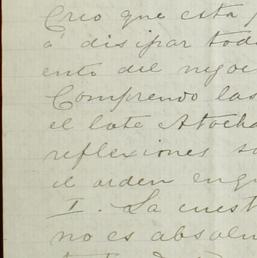 Creo que esta
a disipar todo
ento del nego
Comprendo las
el late Atocha
reflexiones so
el orden en que
I. La cuest
no es absolu